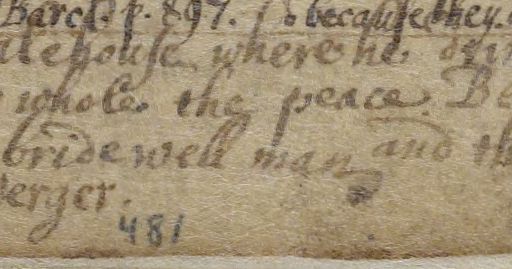 Barcl. p. 897. because they
alehouse where he
whole the peace Be
bridewell man and th
erger.
481